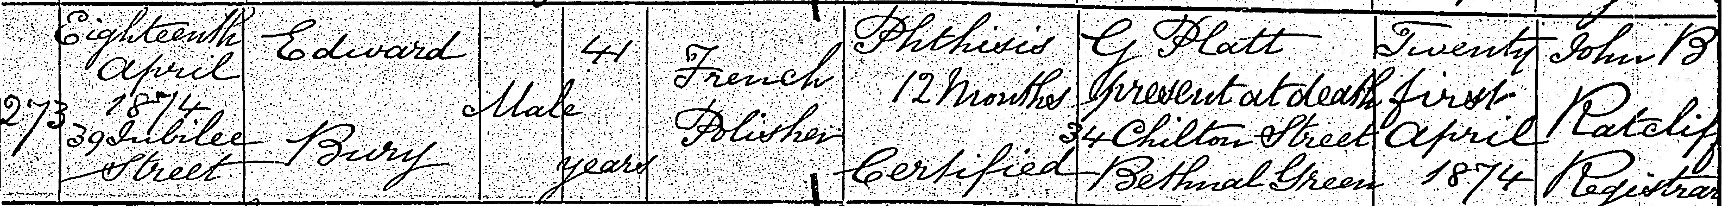 273
Eighteenth
April
1874
39 Jubilee
Street
Edward
Bury
Male
41
years
French
Polisher
Phthisis
12 Months
Certified
G Platt
present at death
34 Chilton Street
Bethnal Green
Twenty
first
April
1874
John B
Ratcliff
Registrar